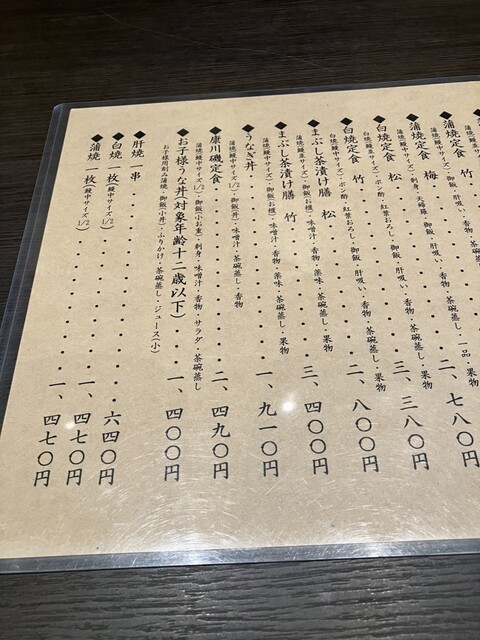 ◆蒲焼定食 竹
◆蒲焼定食 梅
・刺身・天婦羅・御飯・肝吸い・香物・茶碗蒸し・果物
◆白焼定食 松 二、七八〇円
・ポン酢・紅葉おろし・御飯・肝吸い・香物・茶碗蒸し・果物
◆白焼定食 竹 三、三八〇円
・ポン酢・紅葉おろし・御飯・肝吸い・香物・茶碗蒸し・果物
◆まぶし茶漬け膳 松 二、八〇〇円
・御飯(お櫃)・味噌汁・香物・薬味・茶碗蒸し・果物
◆まぶし茶漬け膳 竹 三、四〇〇円
・御飯(お櫃)・味噌汁・香物・薬味・茶碗蒸し・果物
◆うなぎ丼 一、九一〇円
蒲焼(鰻中サイズ1/2)・御飯(丼)・味噌汁・茶碗蒸し・香物
◆康川磯定食 二、四九〇円
蒲焼(鰻中サイズ1/2)・御飯(小お重)・刺身・味噌汁・香物・サラダ・茶碗蒸し
◆お子様うな丼(対象年齢十二歳以下) 一、四〇〇円
お子様用刻み蒲焼・御飯(小丼)・ふりかけ・茶碗蒸し・ジュース(小)
◆肝焼一串 六四〇円
◆白焼一枚(鰻中サイズ1/2) 一、四七〇円
◆蒲焼一枚(鰻中サイズ1/2) 一、四七〇円